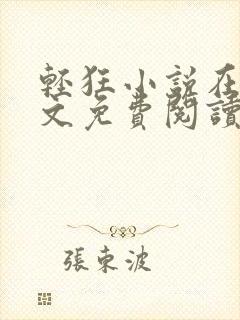 輕狂小說在
文免費閱讀
張東波